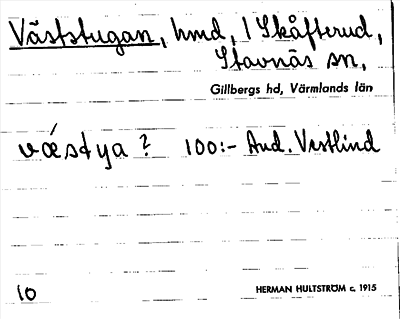 Väststugan, hmd, 1 Skåfterud,
Stavnäs sn,
Gillbergs hd, Värmlands län
vǽstya ? 100:- And. Vestlind
10 HERMAN HULTSTRÖM c. 1915